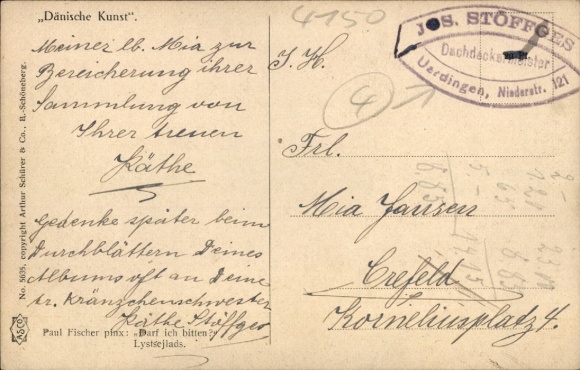 „Dänische Kunst“.
4150
Meiner lb. Mia zur
Bereicherung ihrer
Sammlung von
Ihrer treuen
Käthe
Gedenke später beim
Durchblättern Deines
Albums oft an Deine
tr. Kränzchenschwester
Käthe Stöffges
Paul Fischer pinx: „Darf ich bitten?“
Lystsejlads.
No. 5035, copyright Arthur Schürer & Co., B.-Schöneberg.
ASCO
JOS. STÖFFGES
Dachdeckermeister
Uerdingen, Niederstr. 121
4
I. H.
Frl.
Mia Jansen
Crefeld
Korneliusplatz 4.